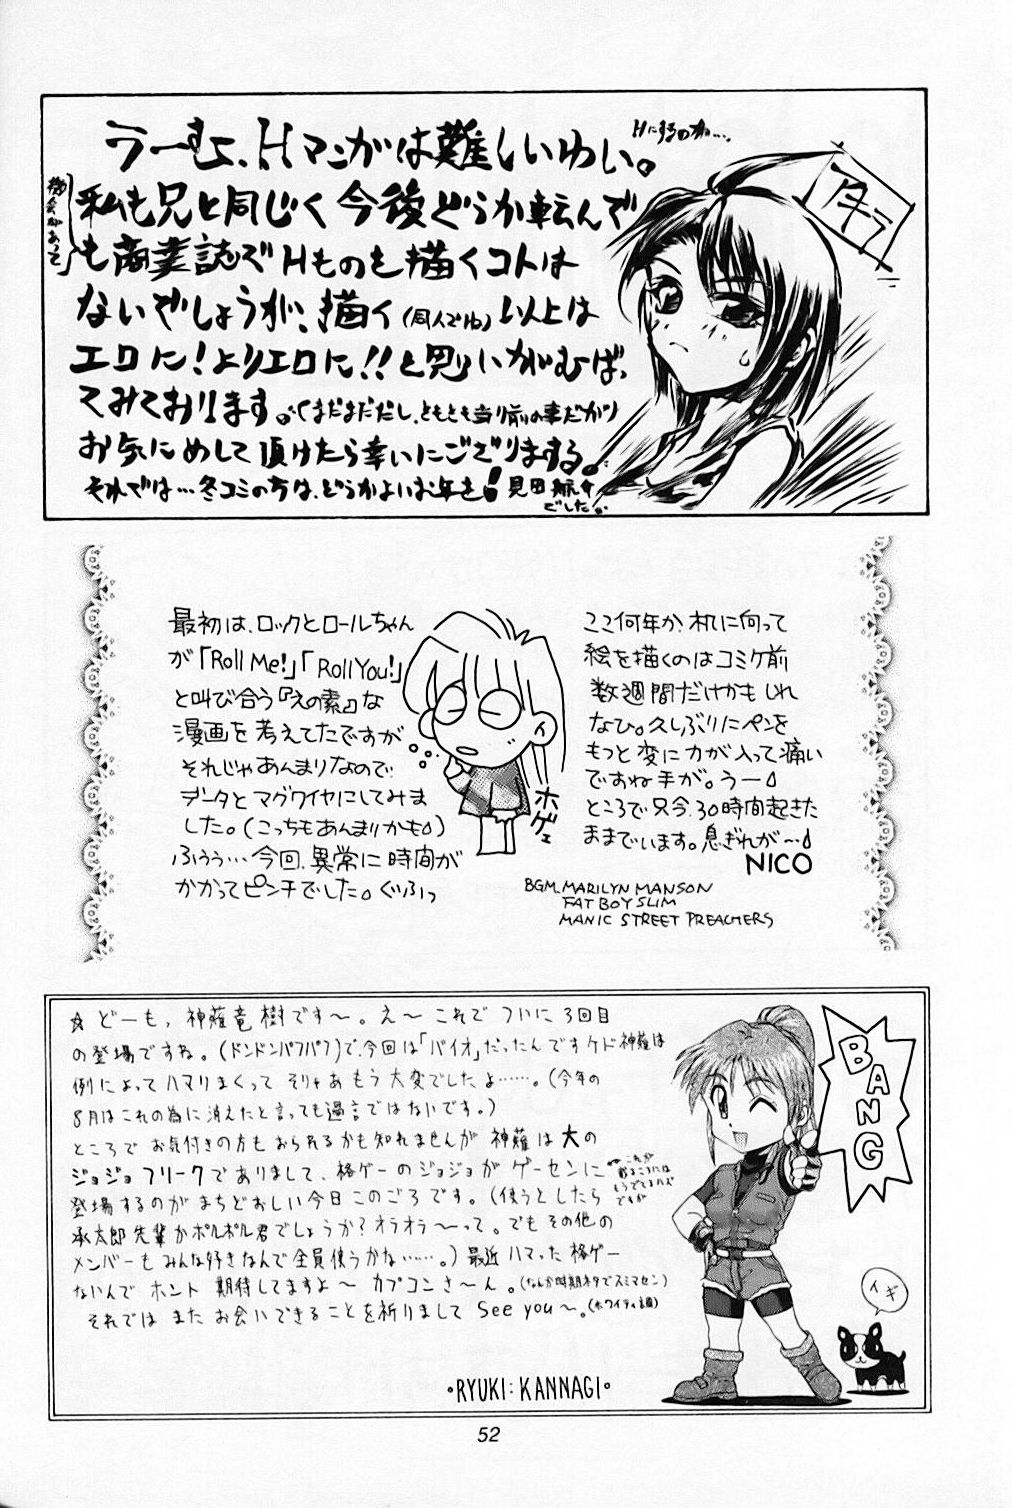 うーむ、Hマンガは難しいわい。
Hにするのか…
アキラ
私も兄と同じく今後どうか転んで
機会があって
も商業誌でHものを描くコトは
ないでしょうが、描く(同人でね)以上は
エロに!よりエロに!!と思いがむば、
てみております。(まだまだだし、ともとも当り前の事だがり
お気にめして頂けたら幸いにござりまする。
それでは…冬コミの方は、どうかよいお年を!
でした。
最初は、ロックとロールちゃん
が「Roll Me!」「Roll You!」
と叫び合う『えの素』な
漫画を考えてたですが
それじゃあんまりなので
データとマグワイヤにしてみま
した。(こっちもあんまりかも)
ふぅぅ…今回、異常に時間が
かかってピンチでした。ぐふっ
ホゲェ
ここ何年か、机に向って
絵を描くのはコミケ前
数週間だけかもしれ
なひ。久しぶりにペンを
もつと変に力が入って痛い
ですね手が。うー
ところで只今、30時間起きた
ままでいます。息ぎれが…
NICO
BGM. MARILYN MANSON
FAT BOY SLIM
MANIC STREET PREACHERS
☆どーも、神薙竜樹です〜。え〜これでついに3回目
の登場ですね。(ドンドンパフパフ)で、今回は「バイオ」だったんですケド神薙は
例によってハマりまくってそりゃあもう大変でしたよ……。(今年の
8月はこれの為に消えたと言っても過言ではないです。)
ところでお気付きの方もおられるかも知れませんが神薙は大の
ジョジョフリークでありまして、格ゲーのジョジョがゲーセンに
登場するのがまちどおしい今日このごろです。(使うとしたら
←これが
出るころには
もうでてるハズ
ですが
承太郎先輩かポルポル君でしょうか?オラオラ〜って。でもその他の
メンバーもみんな好きなんで全員使うかな……。)最近ハマった格ゲー
ないんでホント期待してますよ〜カプコンさ〜ん。(なんか時期ネタでスミマセン)
それではまたお会いできることを祈りましてSee you〜。(ホワイティ調)
BANG
イギ
•RYUKI:KANNAGI•
52